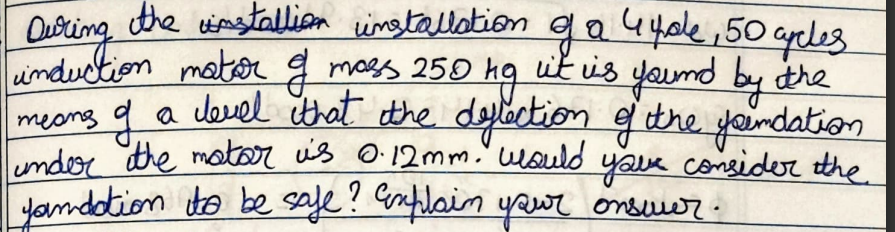 During the installation of a 4 pole, 50 cycles
induction motor of mass 250 kg it is found by the
means of a level that the deflection of the foundation
under the motor is 0.12mm. would you consider the
foundation to be safe? Explain your answer.